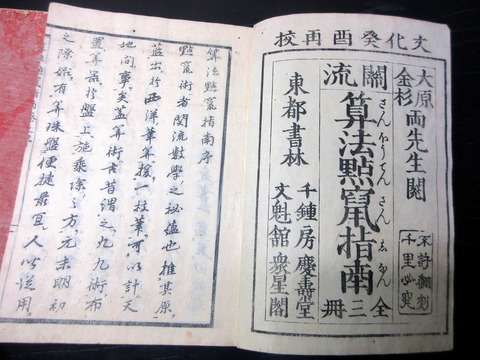 文化癸酉再校
大原
金杉
兩先生閲
不許翻刻
千里必究
關流
算法點竄指南
全三冊
東都書林
千鍾房 慶壽堂
文魁舘 衆星閣
算法點竄指南序
點竄術者関流數學之秘蘊也推其原
蓋出於西洋筆算援一枝筆可以計天
地間事矣蓋算術古昔謂之九九術布
置算器於盤上施乗除之方元末明初
之際有算珠盤便捷最宜人以從用